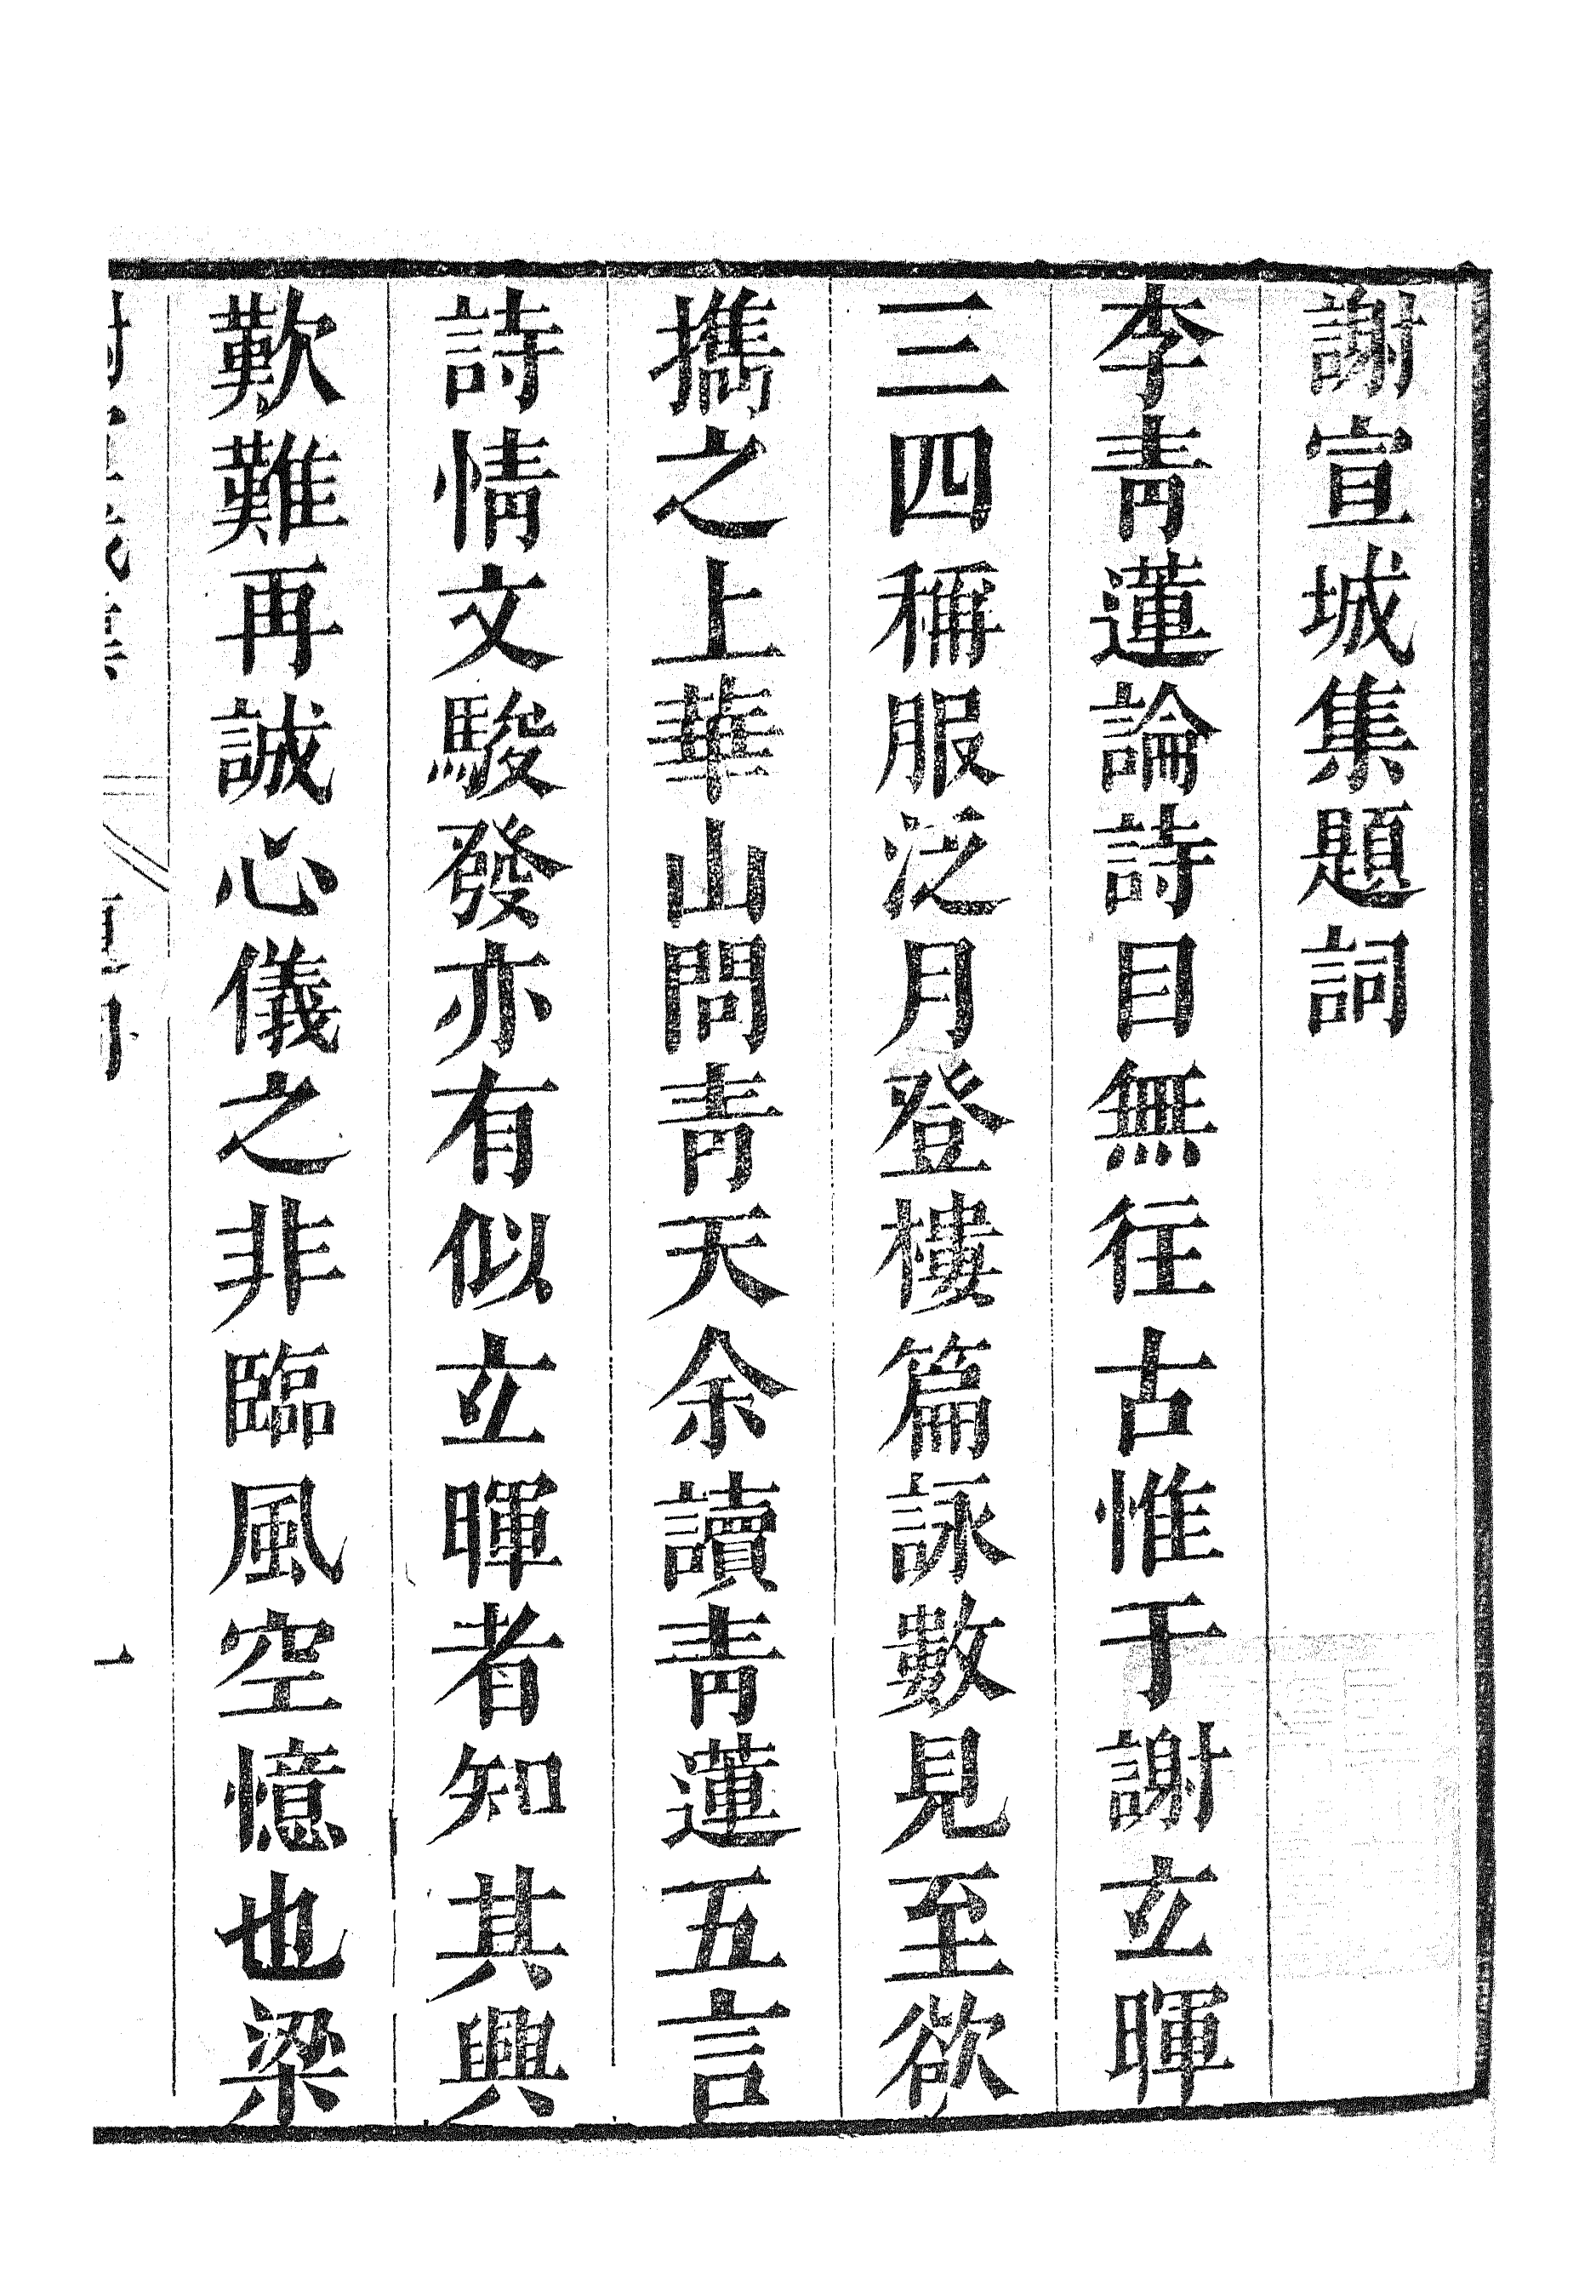 謝宣城集題詞
李青蓮論詩目無往古惟于謝玄暉
三四稱服泛月登樓篇詠數見至欲
攜之上華山問青天余讀青蓮五言
詩情文駿發亦有似玄暉者知其興
歎難再誠心儀之非臨風空憶也梁